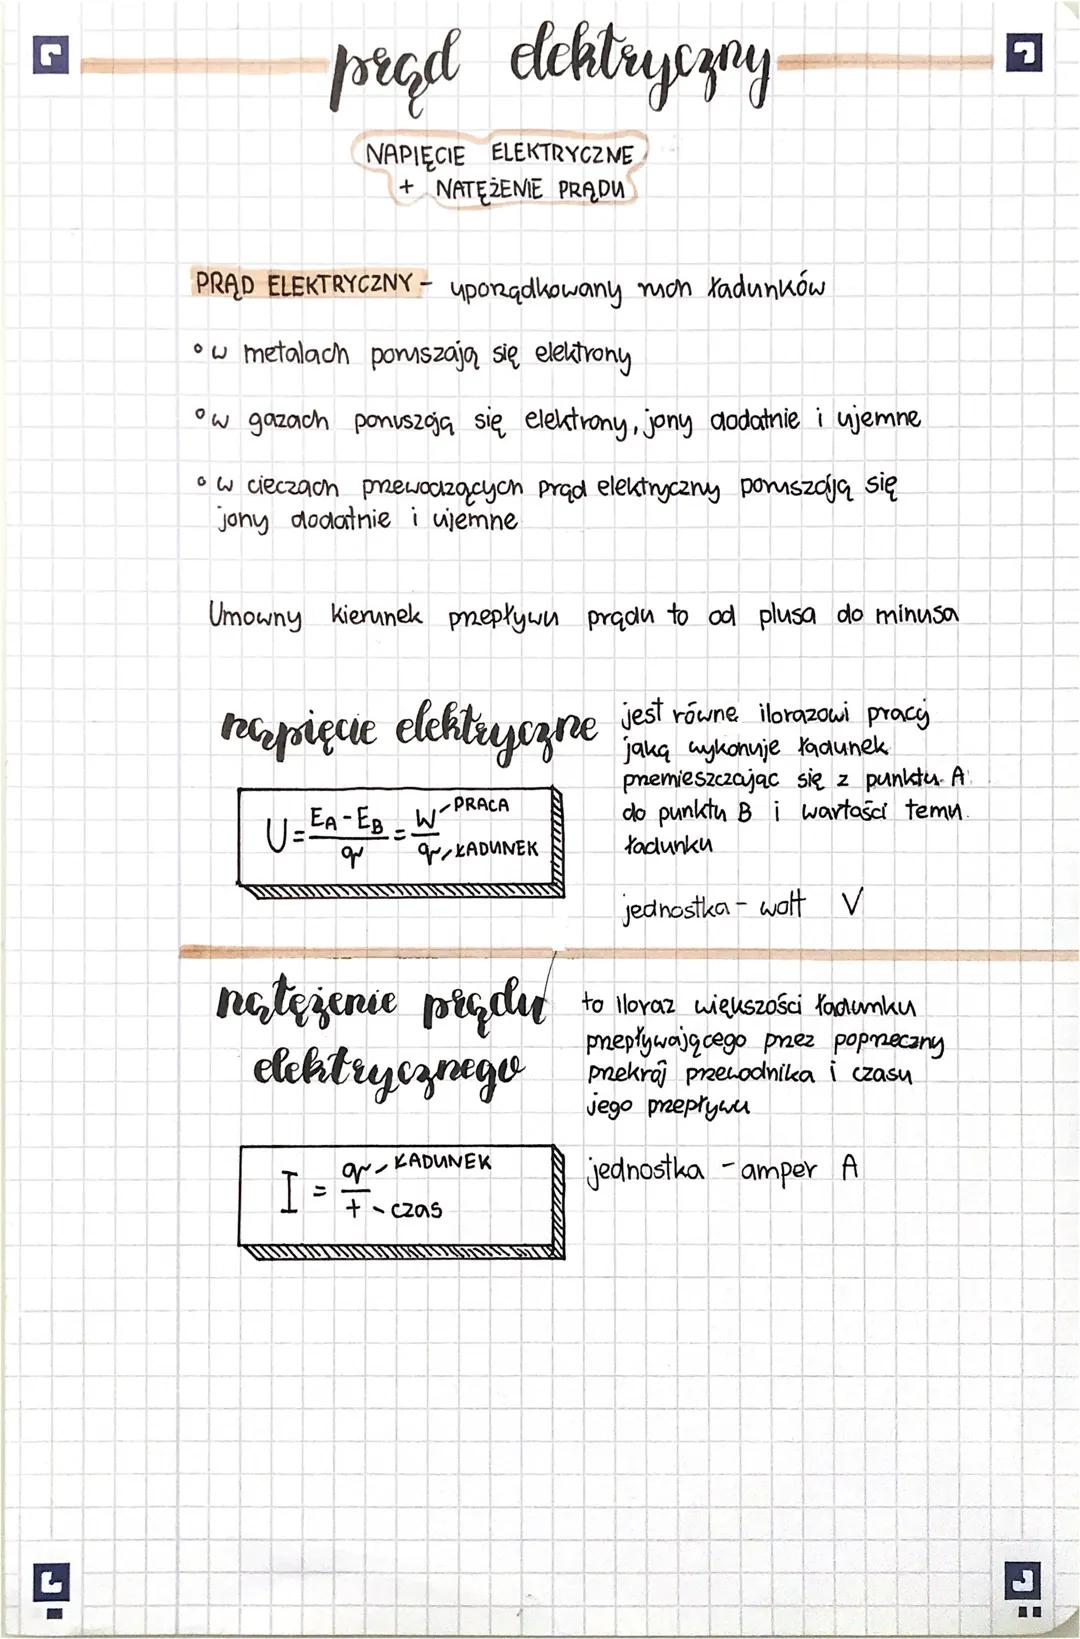 prąd elektryczny
NAPIĘCIE ELEKTRYCZNE
+ NATĘŻENIE PRĄDU
PRĄD ELEKTRYCZNY - uporządkowany ruch ładunków
• w metalach poruszają się elektrony
• w gazach poruszają się elektrony, jony dodatnie i ujemne
• w cieczach przewodzących prąd elektryczny poruszają się
jony dodatnie i ujemne
Umowny kierunek przepływu prądu to od plusa do minusa
napięcie elektryczne
jest równe ilorazowi pracy
jaką wykonuje ładunek
przemieszczając się z punktu A
do punktu B i wartości temu
ładunku
U = (EA - EB)/q = W/q
PRACA
ŁADUNEK
jednostka - wolt V
natężenie prądu
elektrycznego
to iloraz większości ładumku
przepływającego przez poprzeczny
przekrój przewodnika i czasu
jego przepływu
I = q/t
ŁADUNEK
czas
jednostka - amper A